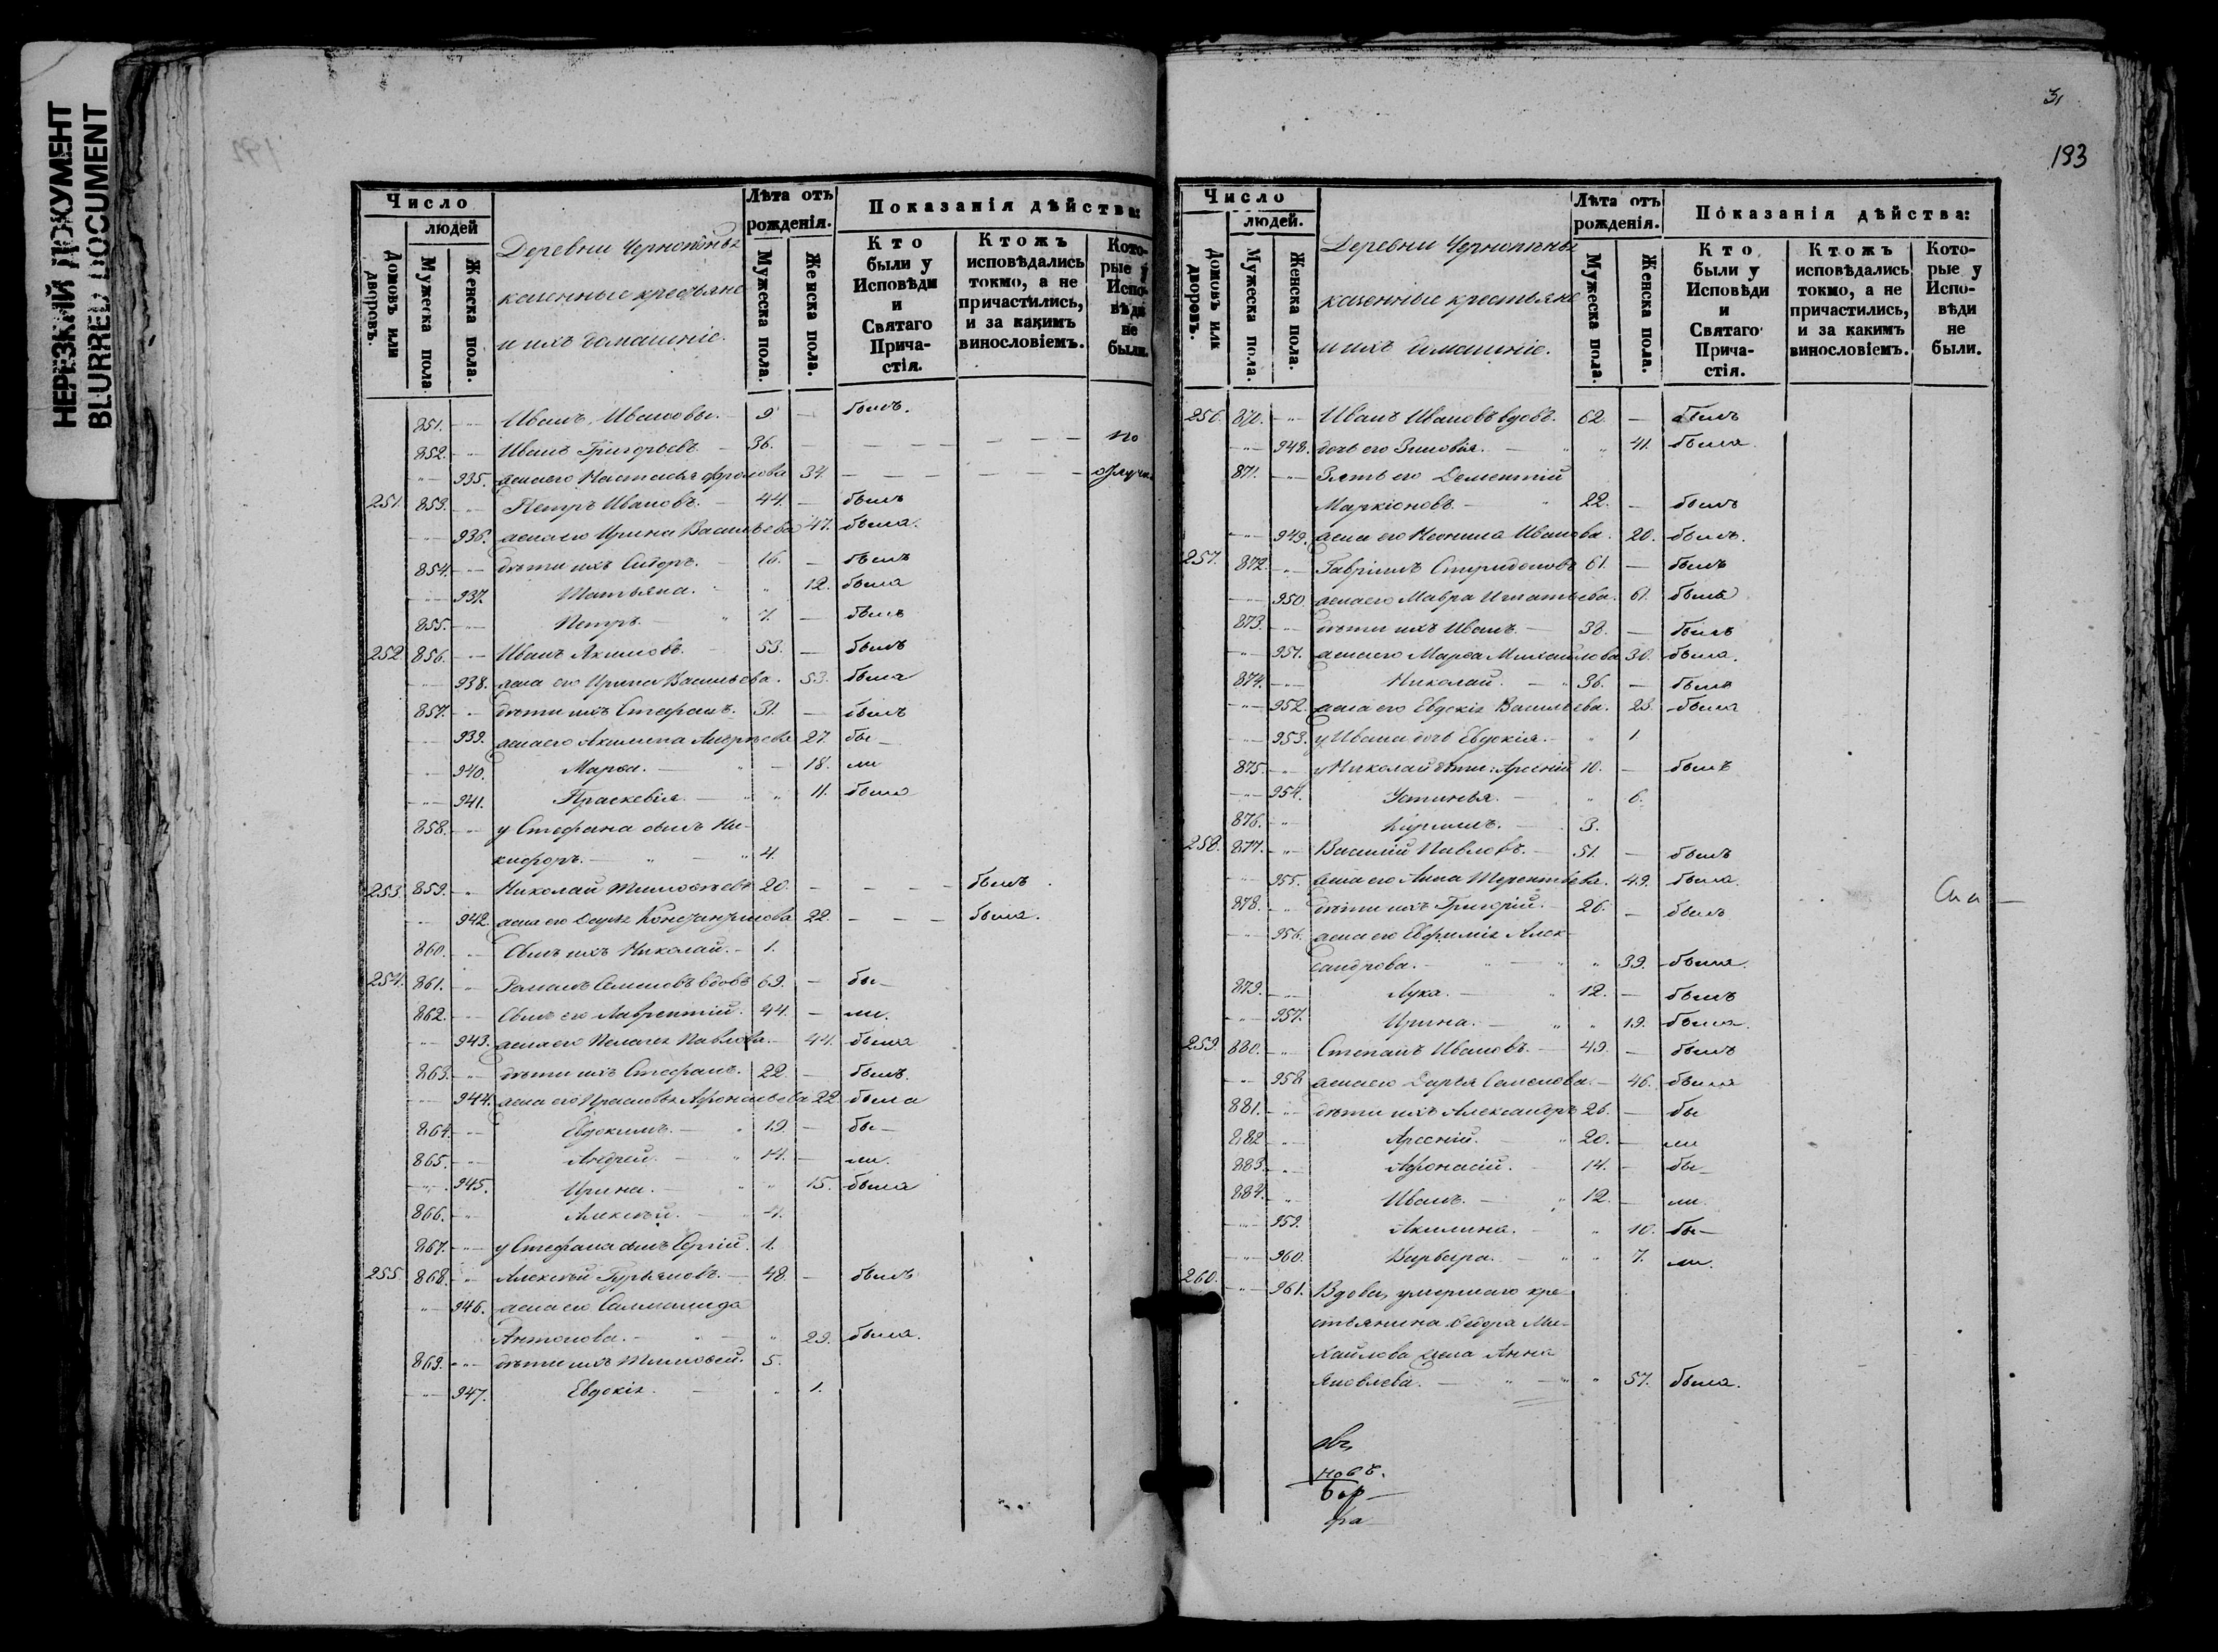 НЕРЕЗКИЙ ДОКУМЕНТ
BLURRED DOCUMENT
Число
людей
Домовъ или дворовъ.
Мужеска пола.
Женска пола.
Деревни
казенные крестьяне
и ихъ домашніе.
Лѣта отъ рожденія.
Мужеска пола.
Женска пола.
Показанія дѣйства:
Кто были у Исповѣди и Святаго Причастія.
Ктожъ исповѣдались токмо, а не причастились, и за какимъ винословіемъ.
Которые у Исповѣди не были.
851. Иванъ Ивановъ. 9 — былъ.
852. Иванъ Григорьевъ 36. — по
935. жена его Настасья Фролова 34. — отлуч.
251. 853. Петръ Ивановъ. 44. — былъ
936. жена его Ирина Васильева 47. была.
854. дѣти ихъ Сидоръ. 16. — былъ
937. Татьяна. 12. была
855. Петръ. 7. — былъ
252. 856. Иванъ Акимовъ. 53. — былъ
938. жена его Ирина Васильева. 53. была
857. дѣти ихъ Стефанъ. 31. — былъ
939. жена его Акилина Андреева 27. бы—
940. Марѳа. 18. ли
941. Праскевія. 11. была
858. у Стефана сынъ Ни-
кифоръ. 4.
253. 859. Николай Тимоѳѣевъ 20. — былъ.
942. жена его Дарья Константинова 22. — была.
860. Сынъ ихъ Николай. 1.
254. 861. Романъ Семеновъ вдовъ 69. — бы—
862. Сынъ его Лаврентій. 44. — ли.
943. жена его Пелагея Павлова. 44. была
863. дѣти ихъ Стефанъ. 22. — былъ.
944. жена его Афонасьева 22. была
864. Евдокимъ. 19 — бы—
865. Андрей. 14. — ли.
945. Ирина. 15. была
866. Алексѣй. 4.
867. у Стефана сынъ Сергій. 1.
255. 868. Алексѣй Гурьяновъ. 48. — былъ
946. жена его
Антонова. 29. была.
869. дѣти ихъ Тимоѳей. 5.
947. Евдокія. 1.
31
193
Число
людей.
Домовъ или дворовъ.
Мужеска пола.
Женска пола.
Деревни
казенные крестьяне
и ихъ домашніе.
Лѣта отъ рожденія.
Мужеска пола.
Женска пола.
Показанія дѣйства:
Кто были у Исповѣди и Святаго Причастія.
Ктожъ исповѣдались токмо, а не причастились, и за какимъ винословіемъ.
Которые у Исповѣди не были.
256. 870. Иванъ Ивановъ вдовъ. 62. — былъ
948. дочь его Зиновія. 41. была
871. Зять его Дементій
Маркіоновъ. 22. — былъ
949. жена его Неонила Иванова. 20. былъ.
257. 872. Гавріилъ Спиридоновъ 61. — былъ
950. жена его Мавра Игнатьева. 61. была
873. дѣти ихъ Иванъ. 38. — былъ
951. жена его Марѳа Михайлова 30. была.
874. Николай. 36. — былъ
952. жена его Евдокія Васильева. 23. была
953. у Ивана дочь Евдокія. 1.
875. у Николая дѣти: Арсеній 10. — былъ
954. Устинья. 6.
876. Кирилъ. 3.
258. 877. Василій Павловъ. 51. — былъ
955. жена его Анна Терентьева. 49. была.
878. дѣти ихъ Григорій. 26. — былъ
956. жена его Евфимія Алек-
сандрова. 39. была.
879. Лука. 12. — былъ
957. Ирина. 19. была.
259. 880. Степанъ Ивановъ. 49. — былъ
958 жена его Дарья Семенова. 46. была
881. дѣти ихъ Александръ 26. — бы
882 Арсеній. 20. — ли
883. Афонасій. 14. — бы—
884. Иванъ. 12. — ли.
959. Акилина. 10. бы—
960. Варвара. 7. ли.
260. 961. Вдова, умершаго кре-
стьянина Ми-
хайлова жена Анна
Яковлева. 57. была.
новъ.